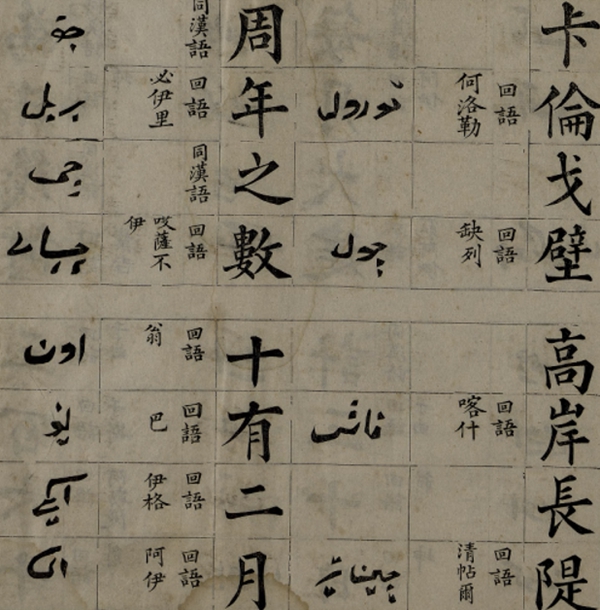 卡倫
回語
何洛勒
قورول
戈壁
回語
缺列
چول
高岸
回語
喀什
قاش
長隄
回語
清帖爾
周
同漢語
جو
年
回語
必伊里
بریل
之
同漢語
جی
數
回語
哎薩不伊
十
回語
翁
اون
有
回語
巴
二
回語
伊格
月
回語
阿伊